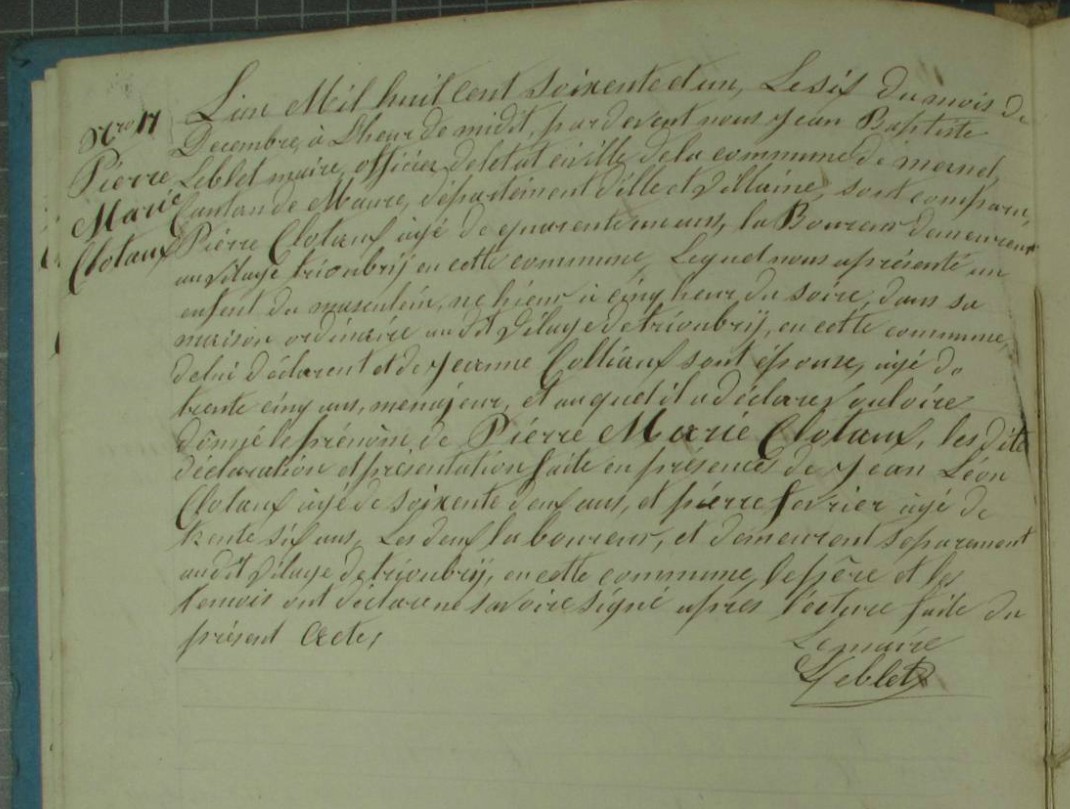 Nro 17
Pierre
Marie
Clotaux
L'an Mil huit Cent Soixente et un, Le six du mois de
Decembre, à L'heur de midit, par devent nous Jean Baptiste
Leblet maire, officier de letat civille de la commune de mernel,
Canton de Maure, département dille et Villaine, sont comparu,
Pierre Clotaux agé de quarente un ans, la Boureur demeureur
au Vilage trioubry en cette commune, Lequel nous a présenté un
enfent du masculein, ne hieur à cinq heur du soire, dans sa
maison ordinaire au dit Vilage de trioubry, en cette commune,
de lui déclarent et de Jeanne Colliaux sont épouse, agé de
trente cinq ans, menajeur, et au quel il a déclare vouloire
donné le prénom de Pierre Marie Clotaux, les dite
déclaration et présentation faite en présence de Jean Léon
Clotaux agé de soixente deux ans, et pierre fevrier agé de
trente six ans, Les deux la boureur, et demeuront séparement
au dit Vilage de trioubry, en cette commune, le père et les
temois ont déclare ne savoire signé apres lécture faite du
présent Acte,
Le maire
Leblet